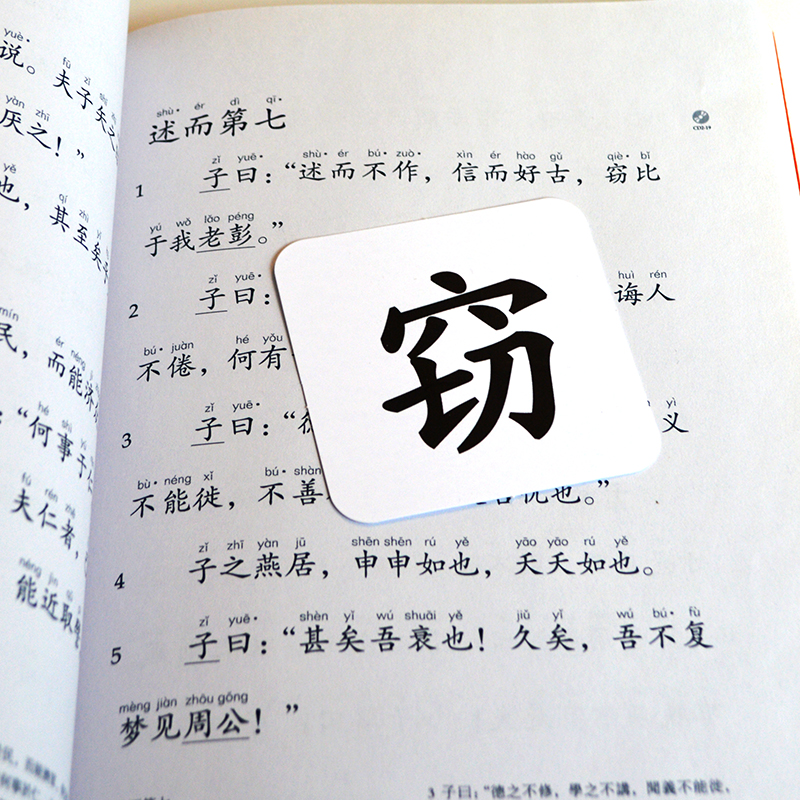 yuè fū zǐ shǐ
说。夫子矢之
yàn zhī
厌之！”
yě qí zhì yǐ
也，其至矣乎
mín ér néng jǐ
民，而能济
hé shì yú
：“何事于仁
fú rén zhě
夫仁者，
néng jìn qǔ
能近取譬
shù· ér dì qī·
述而第七
CD2-19
zǐ yuē· shù· ér bú· zuò· xìn ér hào gǔ qiè· bǐ
1 子曰：“述而不作，信而好古，窃比
yú wǒ lǎo péng
于我老彭。”
窃
zǐ yuē· huì rén
2 子曰： 诲人
bú· juàn hé yǒu
不倦，何有
zǐ yuē· yì
3 子曰：“ 义
bù· néng xǐ bú· shàn
不能徙，不善 忧也。”
zǐ zhī yàn jū shēn shēn rú yě yāo yāo rú yě
4 子之燕居，申申如也，夭夭如也。
zǐ yuē· shèn yǐ wú shuāi yě jiǔ yǐ wú bú· fù
5 子曰：“甚矣吾衰也！久矣，吾不复
mèng jiàn zhōu gōng
梦见周公！”
3 子曰：“德之不修，學之不講，聞義不能徙，